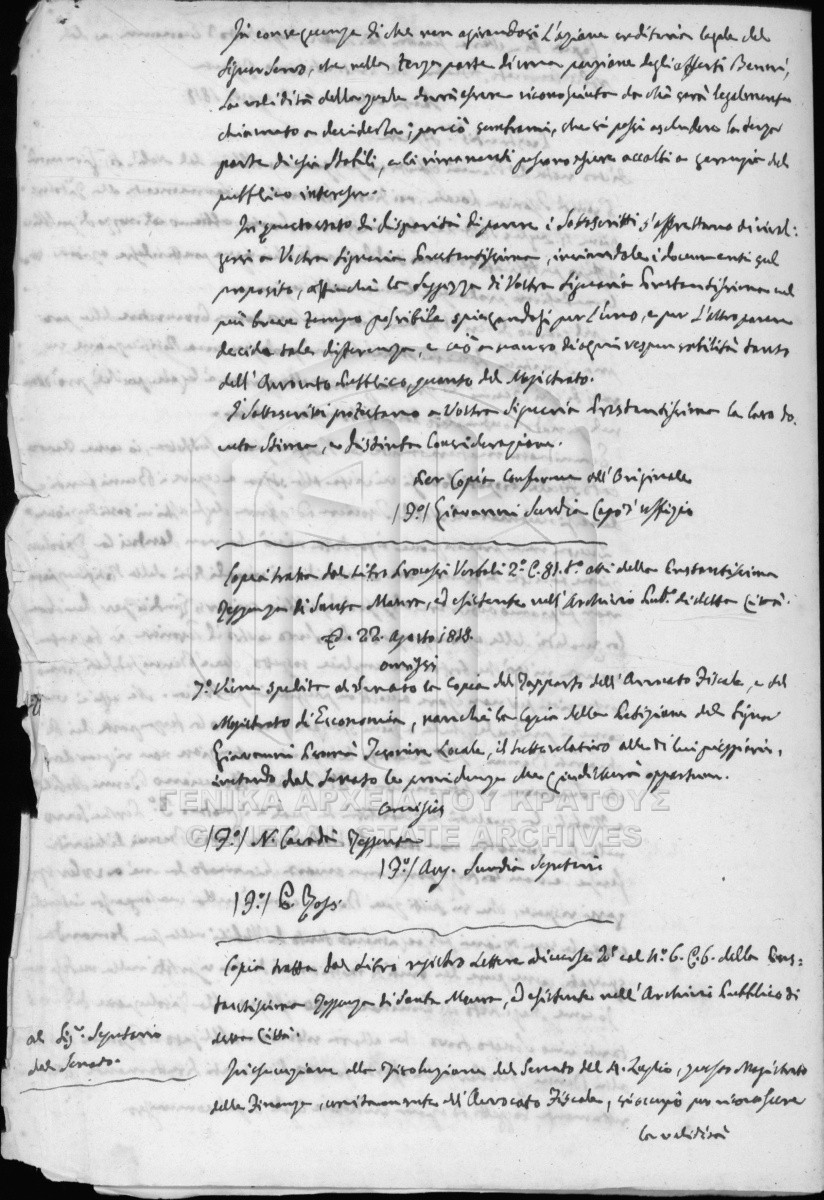 In conseguenza di che non agirandosi l'azione creditoria legale del
Signor Servo, che nella terza parte di una porzione degli offerti Beneni,
La validità della quale dovrà essere riconosciuta da chi sarà legalmente
chiamato a deciderla; perciò sembrami, che si possi escludere la terza
parte di essi Stabili, e li rimanenti possono essere accolti a garanzia del
pubblico interesse.
In questo stato di disparità di parere i Sottoscritti s'affrettano di rivol:
gersi a Vostra Signoria Prestantissima, inviandole i documenti sul
proposito, affinchè la Saggezza di Vostra Signoria Prestantissima nel
più breve tempo possibile spiegandosi per l'uno, e per l'altro parere
decida tale differenza, e ciò a manco di ogni responsabilità tanto
dell'Avvocato Pubblico, quanto del Magistrato.
I Sottoscritti protestano a Vostra Signoria Prestantissima la loro do:
vuta stima, e distinta Considerazione.
Per Copia Conforme all'Originale
/Fo/ Giovanni Capo d'uffizio
Copia tratta dal Libro Processi Verbali 2o C. 81. to atti della Prestantissima
Reggenza di Santa Maura, ed esistente nell'Archivio Pubo di detta Città.
22. Agosto 1818.
omissis
7o Viene spedita al Senato la Copia del Rapporto dell'Avvocato Fiscale, e del
Magistrato di Economia, nonchè la Copia della Petizione del Signor
Giovanni Tesorier Locale, il tutto relativo alle di lui pieggierie,
invocando dal Senato le providenze che giudicherà opportune.
omissis
/Fo/ N. Reggente
/Fo/ Ang. Segretario
/Fo/
Copia tratta dal Libro registro Lettere diverse 2o al No 6. C. 6. della Pres-
tantissima Reggenza di Santa Maura, ed esistente nell'Archivio Pubblico di
detta Città.
al Sigr Segretario
del Senato.
In esecuzione alla Risoluzione del Senato del 4. Luglio, questo Magistrato
della Finanza, unitamente all'Avvocato Fiscale, si occupò per riconoscere
la validità
ΓΕΝΙΚΑ ΑΡΧΕΙΑ ΤΟΥ ΚΡΑΤΟΥΣ
GENERAL STATE ARCHIVES